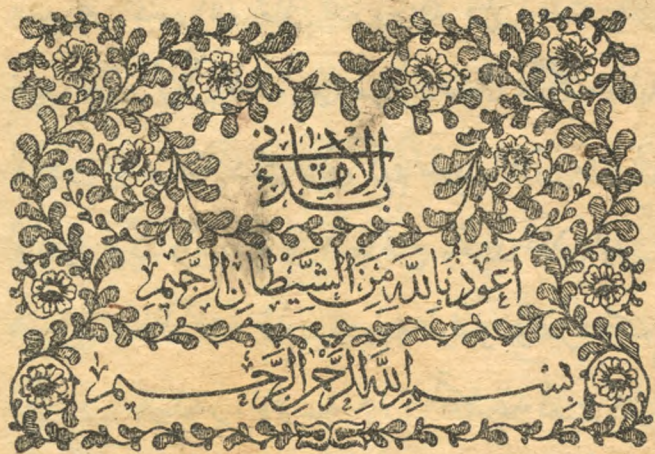 بدء الامانی
اَعُوذُ بِاللَّهِ مِنَ الشَّيْطَانِ الرَّجِيمِ
بِسْمِ اللَّهِ الرَّحْمٰنِ الرَّحِيمِ